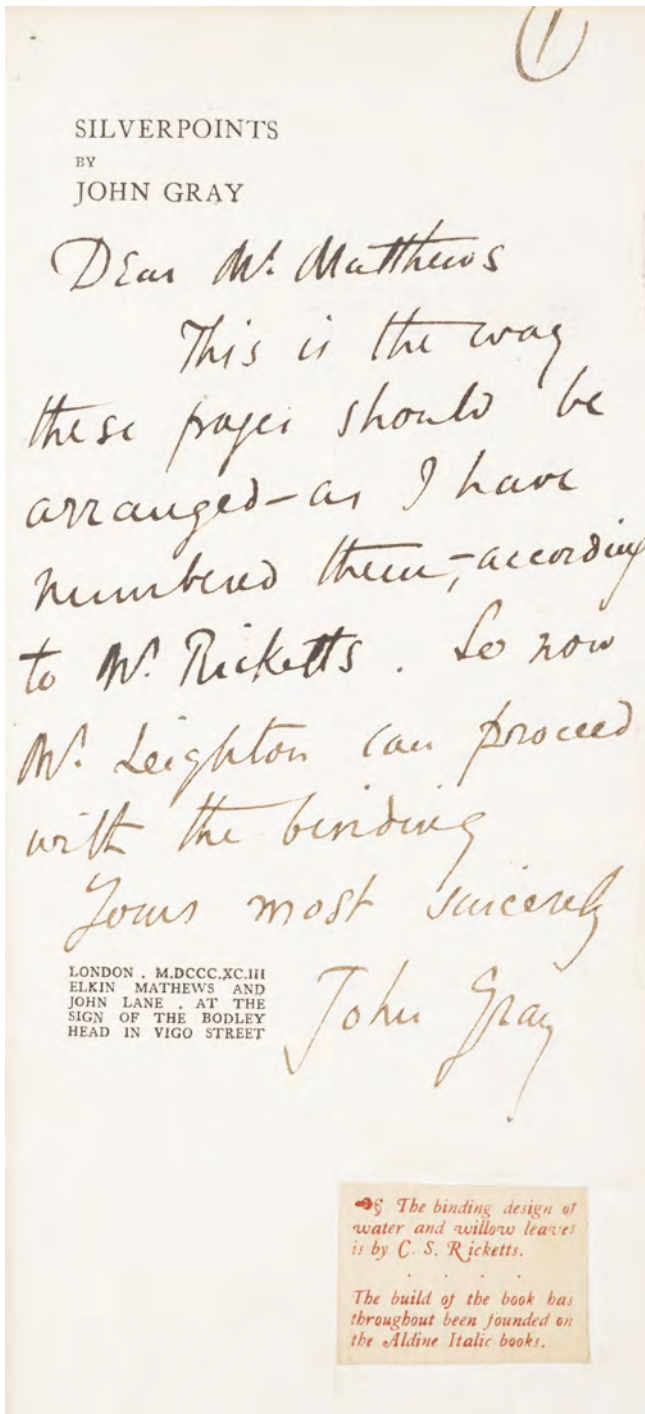 1
SILVERPOINTS
BY
JOHN GRAY
Dear Mr. Matthews
This is the way
these pages should be
arranged – as I have
numbered them, – according
to Mr. Ricketts. So now
Mr. Leighton can proceed
with the binding
Yours most sincerely
John Gray
LONDON . M.DCCC.XC.III
ELKIN MATHEWS AND
JOHN LANE . AT THE
SIGN OF THE BODLEY
HEAD IN VIGO STREET
The binding design of
water and willow leaves
is by C. S. Ricketts.
. . . .
The build of the book has
throughout been founded on
the Aldine Italic books.